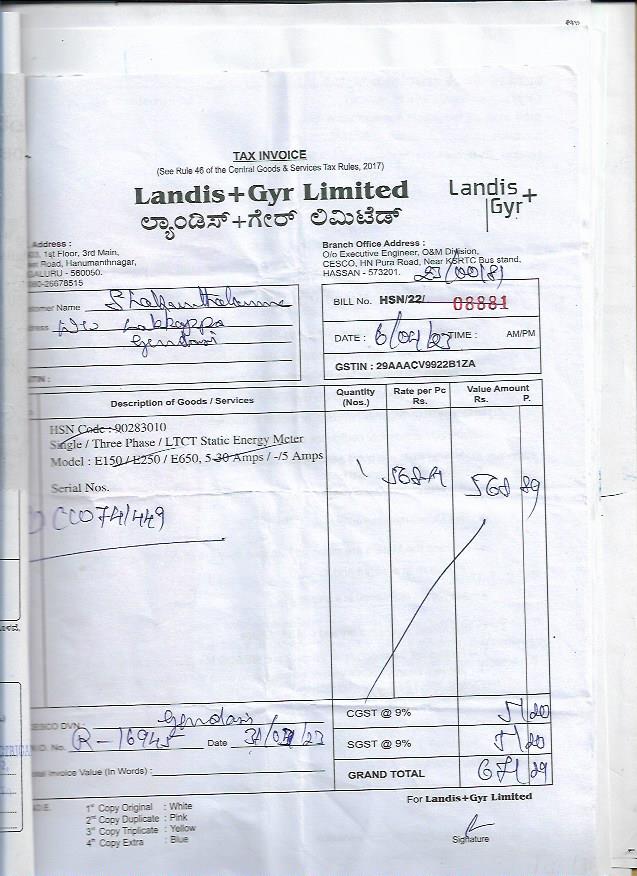 TAX INVOICE
(See Rule 46 of the Central Goods & Services Tax Rules, 2017)
Landis+Gyr Limited
ಲ್ಯಾಂಡಿಸ್+ಗೇರ್ ಲಿಮಿಟೆಡ್
Landis
Gyr+
Address :
1st Floor, 3rd Main,
Road, Hanumanthnagar,
ALURU - 560050.
080-26678515
Branch Office Address :
O/o Executive Engineer, O&M Division,
CESCO, HN Pura Road, Near KSRTC Bus stand,
HASSAN - 573201.
omer Name
ress
TIN :
BILL No. HSN/22/ 08881
DATE : 6/04/23 TIME : AM/PM
GSTIN : 29AAACV9922B1ZA
Description of Goods / Services
Quantity (Nos.)
Rate per Pc Rs.
Value Amount Rs. P.
HSN Code : 90283010
Single / Three Phase / LTCT Static Energy Meter
Model : E150 / E250 / E650, 5-30 Amps / -/5 Amps
1
568 89
Serial Nos.
CC0741449
CGST @ 9% 51 20
CESCO DVN.
O. No. R-16945 Date 31/03/23
SGST @ 9% 51 20
GRAND TOTAL 671 29
Invoice Value (In Words) :
For Landis+Gyr Limited
1st Copy Original : White
2nd Copy Duplicate : Pink
3rd Copy Triplicate : Yellow
4th Copy Extra : Blue
Signature